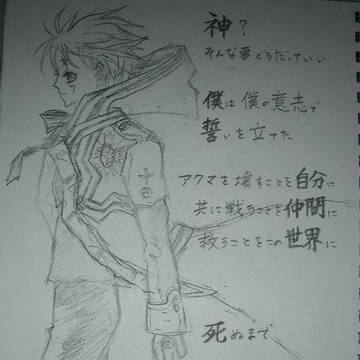 神?
そんな事どうだっていい
僕は僕の意志で
誓いを立てた
アクマを壊すことを自分に
共に戦うことを仲間に
救うことをこの世界に
死ぬまで